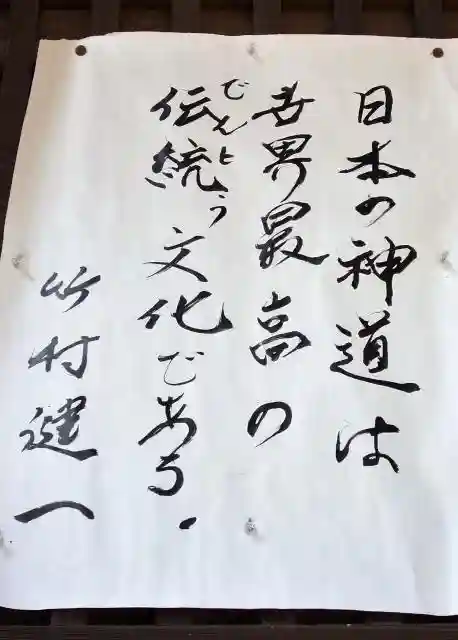 日本の神道は
世界最高の
伝統文化である.
でんとう
竹村健一